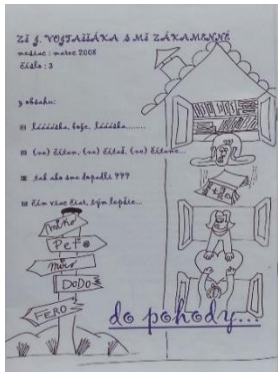 ZŠ J. VOJTAŠŠÁKA S MŠ ZÁKAMENNÉ
mesiac : marec 2008
číslo : 3
z obsahu:
láááska, bože, láááska........
(ne) čítam, (ne) čítaš, (ne) čítame...
tak ako sme dopadli ???
čím viac čiar, tým lepšie...
PEŤO
MIŠO
DODO
FERO
do pohody...